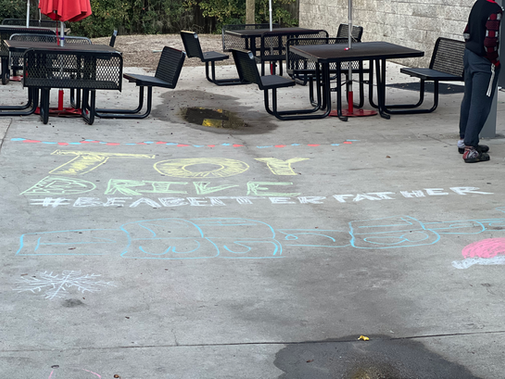 TOY
DRIVE
#BEABETTERFATHER